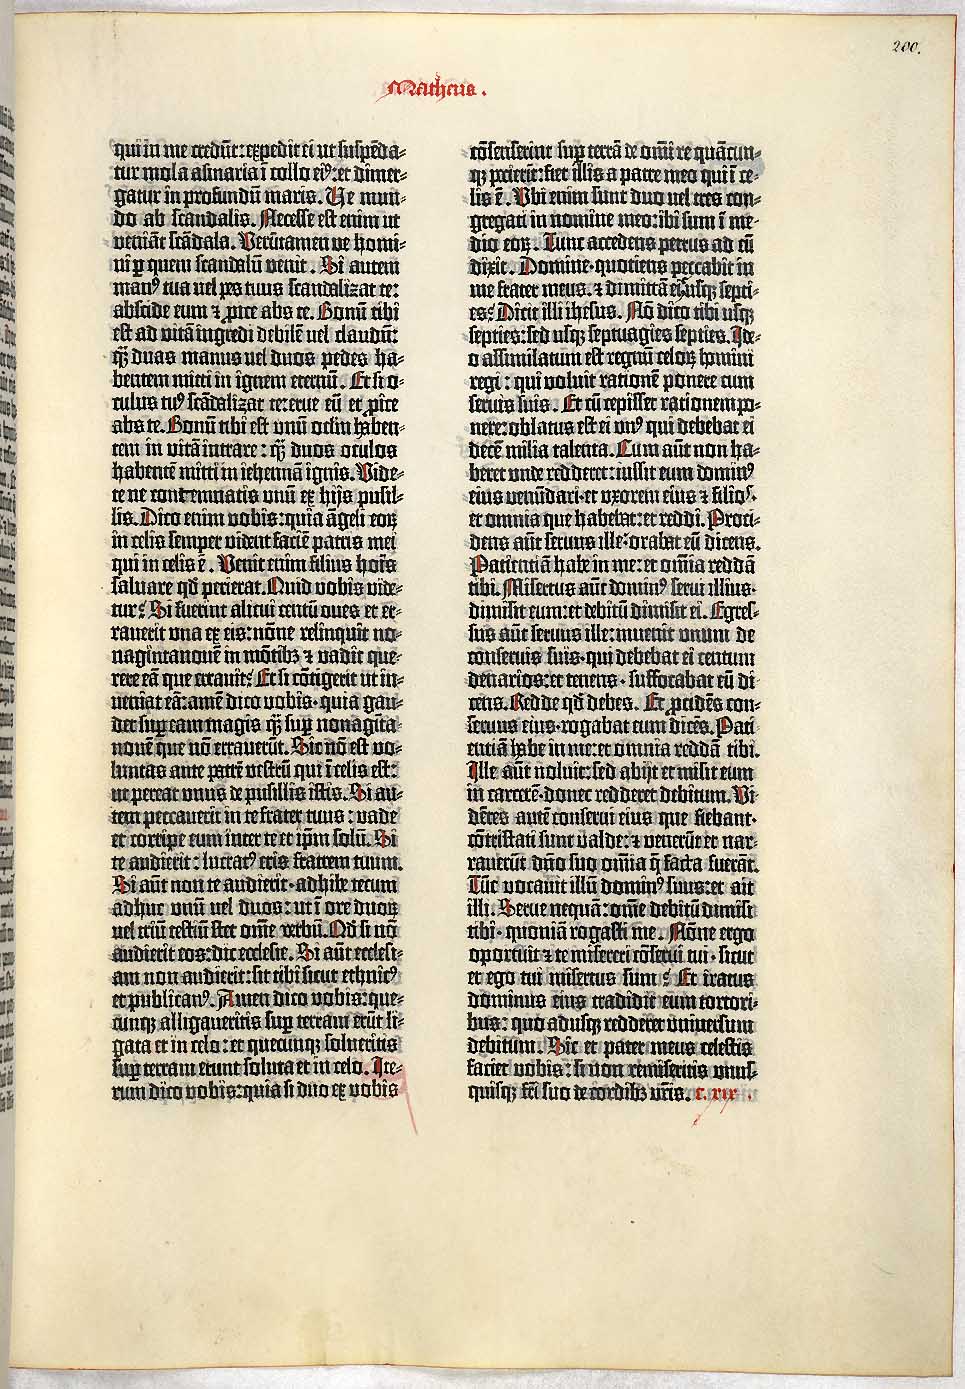 200.
Matheus.
qui in me credūt: expedit ei ut suspēda-
tur mola asinaria ī collo eiꝰ: et dimer-
gatur in profundū maris. Ve mun-
do ab scandalis. Necesse est enim ut
veniāt scādala. Verūtamen ve homi-
ni ꝑ quem scandalū venit. Si autem
manꝰ tua vel pes tuus scandalizat te:
abscide eum ⁊ ꝓice abs te. Bonū tibi
est ad vitā ingredi debilē vel claudū:
q̄ꝫ duas manus vel duos pedes ha-
bentem mitti in ignem eternū. Et si o-
culus tuꝰ scādalizat te: erue eū et ꝓice
abs te. Bonū tibi est unū oclm haben-
tem in vitā intrare: q̄ꝫ duos oculos
habentē mitti in iehennā ignis. Vide-
te ne contemnatis unū ex hijs pusil-
lis. Dico enim vobis: quia āgeli eoꝝ
in celis semper vident faciē patris mei
qui in celis ē. Venit enim filius hoīs
saluare qd̄ perierat. Quid vobis vide-
tur? Si fuerint alicui centū oues et er-
rauerit una ex eis: nōne relinquit no-
nagintanouē in mōtibꝫ ⁊ vadit que-
rere eā que errauit? Et si cōtigerit ut in-
ueniat eā: amē dico vobis· quia gau-
det suꝑ eam magis q̄ꝫ suꝑ nonagīta-
nouē que nō errauerūt. Sic nō est vo-
luntas ante patrē vestrū qui ī celis est:
ut pereat unus de pusillis istis. Si au-
tem peccauerit in te frater tuus: vade
et corripe eum inter te et ip̄m solū. Si
te audierit: lucratꝰ eris fratrem tuum.
Si aūt non te audierit· adhibe tecum
adhuc unū vel duos: ut ī ore duoꝝ
vel triū testiū stet om̄e verbū. Qd̄ si nō
audierit eos: dic ecclesie. Si aūt ecclesi-
am non audierit: sit tibi sicut ethnicꝰ
et publicanꝰ. Amen dico vobis: que-
cunqꝫ alligaueritis suꝑ terram erūt li-
gata et in celo: et quecunqꝫ solueritis
suꝑ terram erunt soluta et in celo. Ite-
rum dico vobis: quia si duo ex vobis
cōsenserint suꝑ terrā de om̄i re quācun-
qꝫ pecierit: fiet illis a patre meo qui ī ce-
lis ē. Vbi enim sunt duo vel tres con-
gregati in nomine meo: ibi sum ī me-
dio eoꝝ. Tunc accedens petrus ad eū
dixit. Domine· quotiens peccabit in
me frater meus· ⁊ dimittā ei? Usqꝫ septi-
es? Dicit illi ihesus. Nō dico tibi usqꝫ
septies: sed usqꝫ septuagies septies. Ide-
o assimilatum est regnū celoꝝ homini
regi: qui voluit rationē ponere cum
seruis suis. Et cū cepisset rationem po-
nere: oblatus est ei unꝰ qui debebat ei
decē milia talenta. Cum aūt non ha-
beret unde redderet: iussit eum dominꝰ
eius venūdari· et uxorem eius ⁊ filios·
et omnia que habebat: et reddi. Proci-
dens aūt seruus ille· orabat eū dicens.
Patientiā habe in me: et om̄ia reddā
tibi. Misertus aūt dominꝰ serui illius·
dimisit eum: et debitū dimisit ei. Egres-
sus aūt seruus ille: inuenit unum de
conseruis suis· qui debebat ei centum
denarios: et tenens· suffocabat eū di-
cens. Redde qd̄ debes. Et ꝓcidēs con-
seruus eius· rogabat eum dicēs. Pati-
entiā habe in me: et omnia reddā tibi.
Ille aūt noluit: sed abijt et misit eum
in carcerē· donec redderet debitum. Vi-
dētes autē conserui eius que fiebant·
cōtristati sunt valde: ⁊ venerūt et nar-
rauerūt dn̄o suo om̄ia q̄ facta fuerāt.
Tūc vocauit illū dominꝰ suus: et ait
illi. Serue nequā: om̄e debitū dimisi
tibi· quoniā rogasti me. Nōne ergo
oportuit ⁊ te misereri cōserui tui· sicut
et ego tui misertus sum? Et iratus
dominus eius tradidit eum tortori-
bus: quo adusqꝫ redderet uniuersum
debitum. Sic et pater meus celestis
faciet vobis: si non remiseritis unus-
quisqꝫ fr̄i suo de cordibꝫ vr̄is. c. xix.